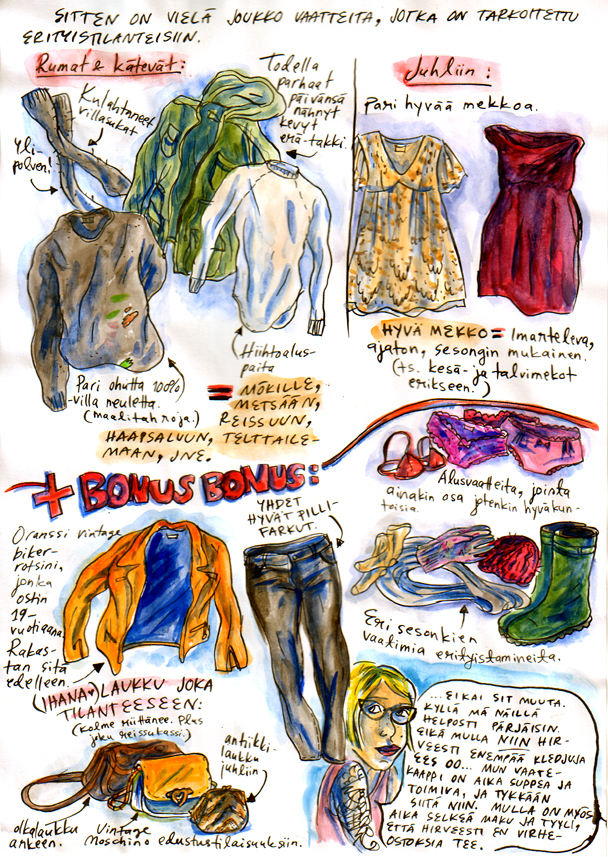 SITTEN ON VIELÄ JOUKKO VAATTEITA, JOTKA ON TARKOITETTU
ERITYISTILANTEISIIN.
Rumat & kätevät:
Kulahtaneet
villasukat
Yli-
polven!
Todella
parhaat
päivänsä
nähnyt
kevyt
erä-takki.
Pari ohutta 100%
-villa neuletta.
(maalitahroja.)
Hiihtoalus-
paita
= MÖKILLE,
METSÄÄN,
REISSUUN,
HAAPSALUUN, TELTTAILE-
MAAN, JNE.
Juhliin:
Pari hyvää mekkoa.
HYVÄ MEKKO = Imarteleva,
ajaton, sesongin mukainen.
(ts. kesä- ja talvimekot
erikseen)
+ BONUS BONUS:
Alusvaatteita, joista
ainakin osa jotenkin hyväkun-
toisia.
Oranssi vintage
biker-
rotsini,
jonka
ostin
19-
vuotiaana.
Rakas-
tan sitä
edelleen.
YHDET
HYVÄT PILLI-
FARKUT.
Eri sesonkien
vaatimia erityistamineita.
(IHANA♥) LAUKKU JOKA
TILANTEESEEN:
(Kolme riittänee. Plus
joku reissukassi.)
antiikki-
laukku
juhliin
olkalaukku
arkeen.
Vintage
Moschino edustustilaisuuksiin.
...EIKAI SIT MUUTA.
KYLLÄ MÄ NÄILLÄ
HELPOSTI PÄRJÄISIN.
EIKÄ MULLA NIIN HIR-
VEESTI ENEMPÄÄ KLEDJUJA
EES OO... MUN VAATE-
KAAPPI ON AIKA SUPPEA JA
TOIMIVA, JA TYKKÄÄN
SIITÄ NIIN. MULLA ON MYÖS
AIKA SELKEÄ MAKU JA TYYLI,
ETTÄ HIRVEESTI EN VIRHE-
OSTOKSIA TEE.